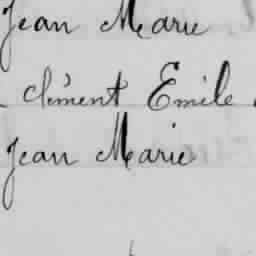 Jean Marie
clément Emile
Jean Marie